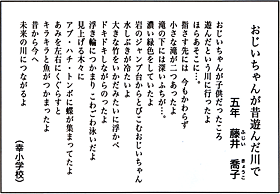 おじいちゃんが昔遊んだ川で
五年　藤井　喬子
ふじい　きょうこ
おじいちゃんが子供だったころ
遊んだという川に行ったよ
はるあきに……。
指さす先には　今もかわらず
小さな滝が二つあったよ
滝の下には深いふちが…。
濃い緑色をしていたよ
岩のジャンプ台からとびこむおじいちゃん
水しぶきが冷たいよ
大きな竹をいかだみたいに浮かべ
ドキドキしながらのったよ
浮き輪につかまりこわごわ泳いだよ
見上げる木々に
アブ・ハチ・トンボに蝶が集まってたよ
あみを左右にくぐらすと
キラキラと魚がつかまったよ
昔から今へ
未来の川につながるよ
（幸小学校）